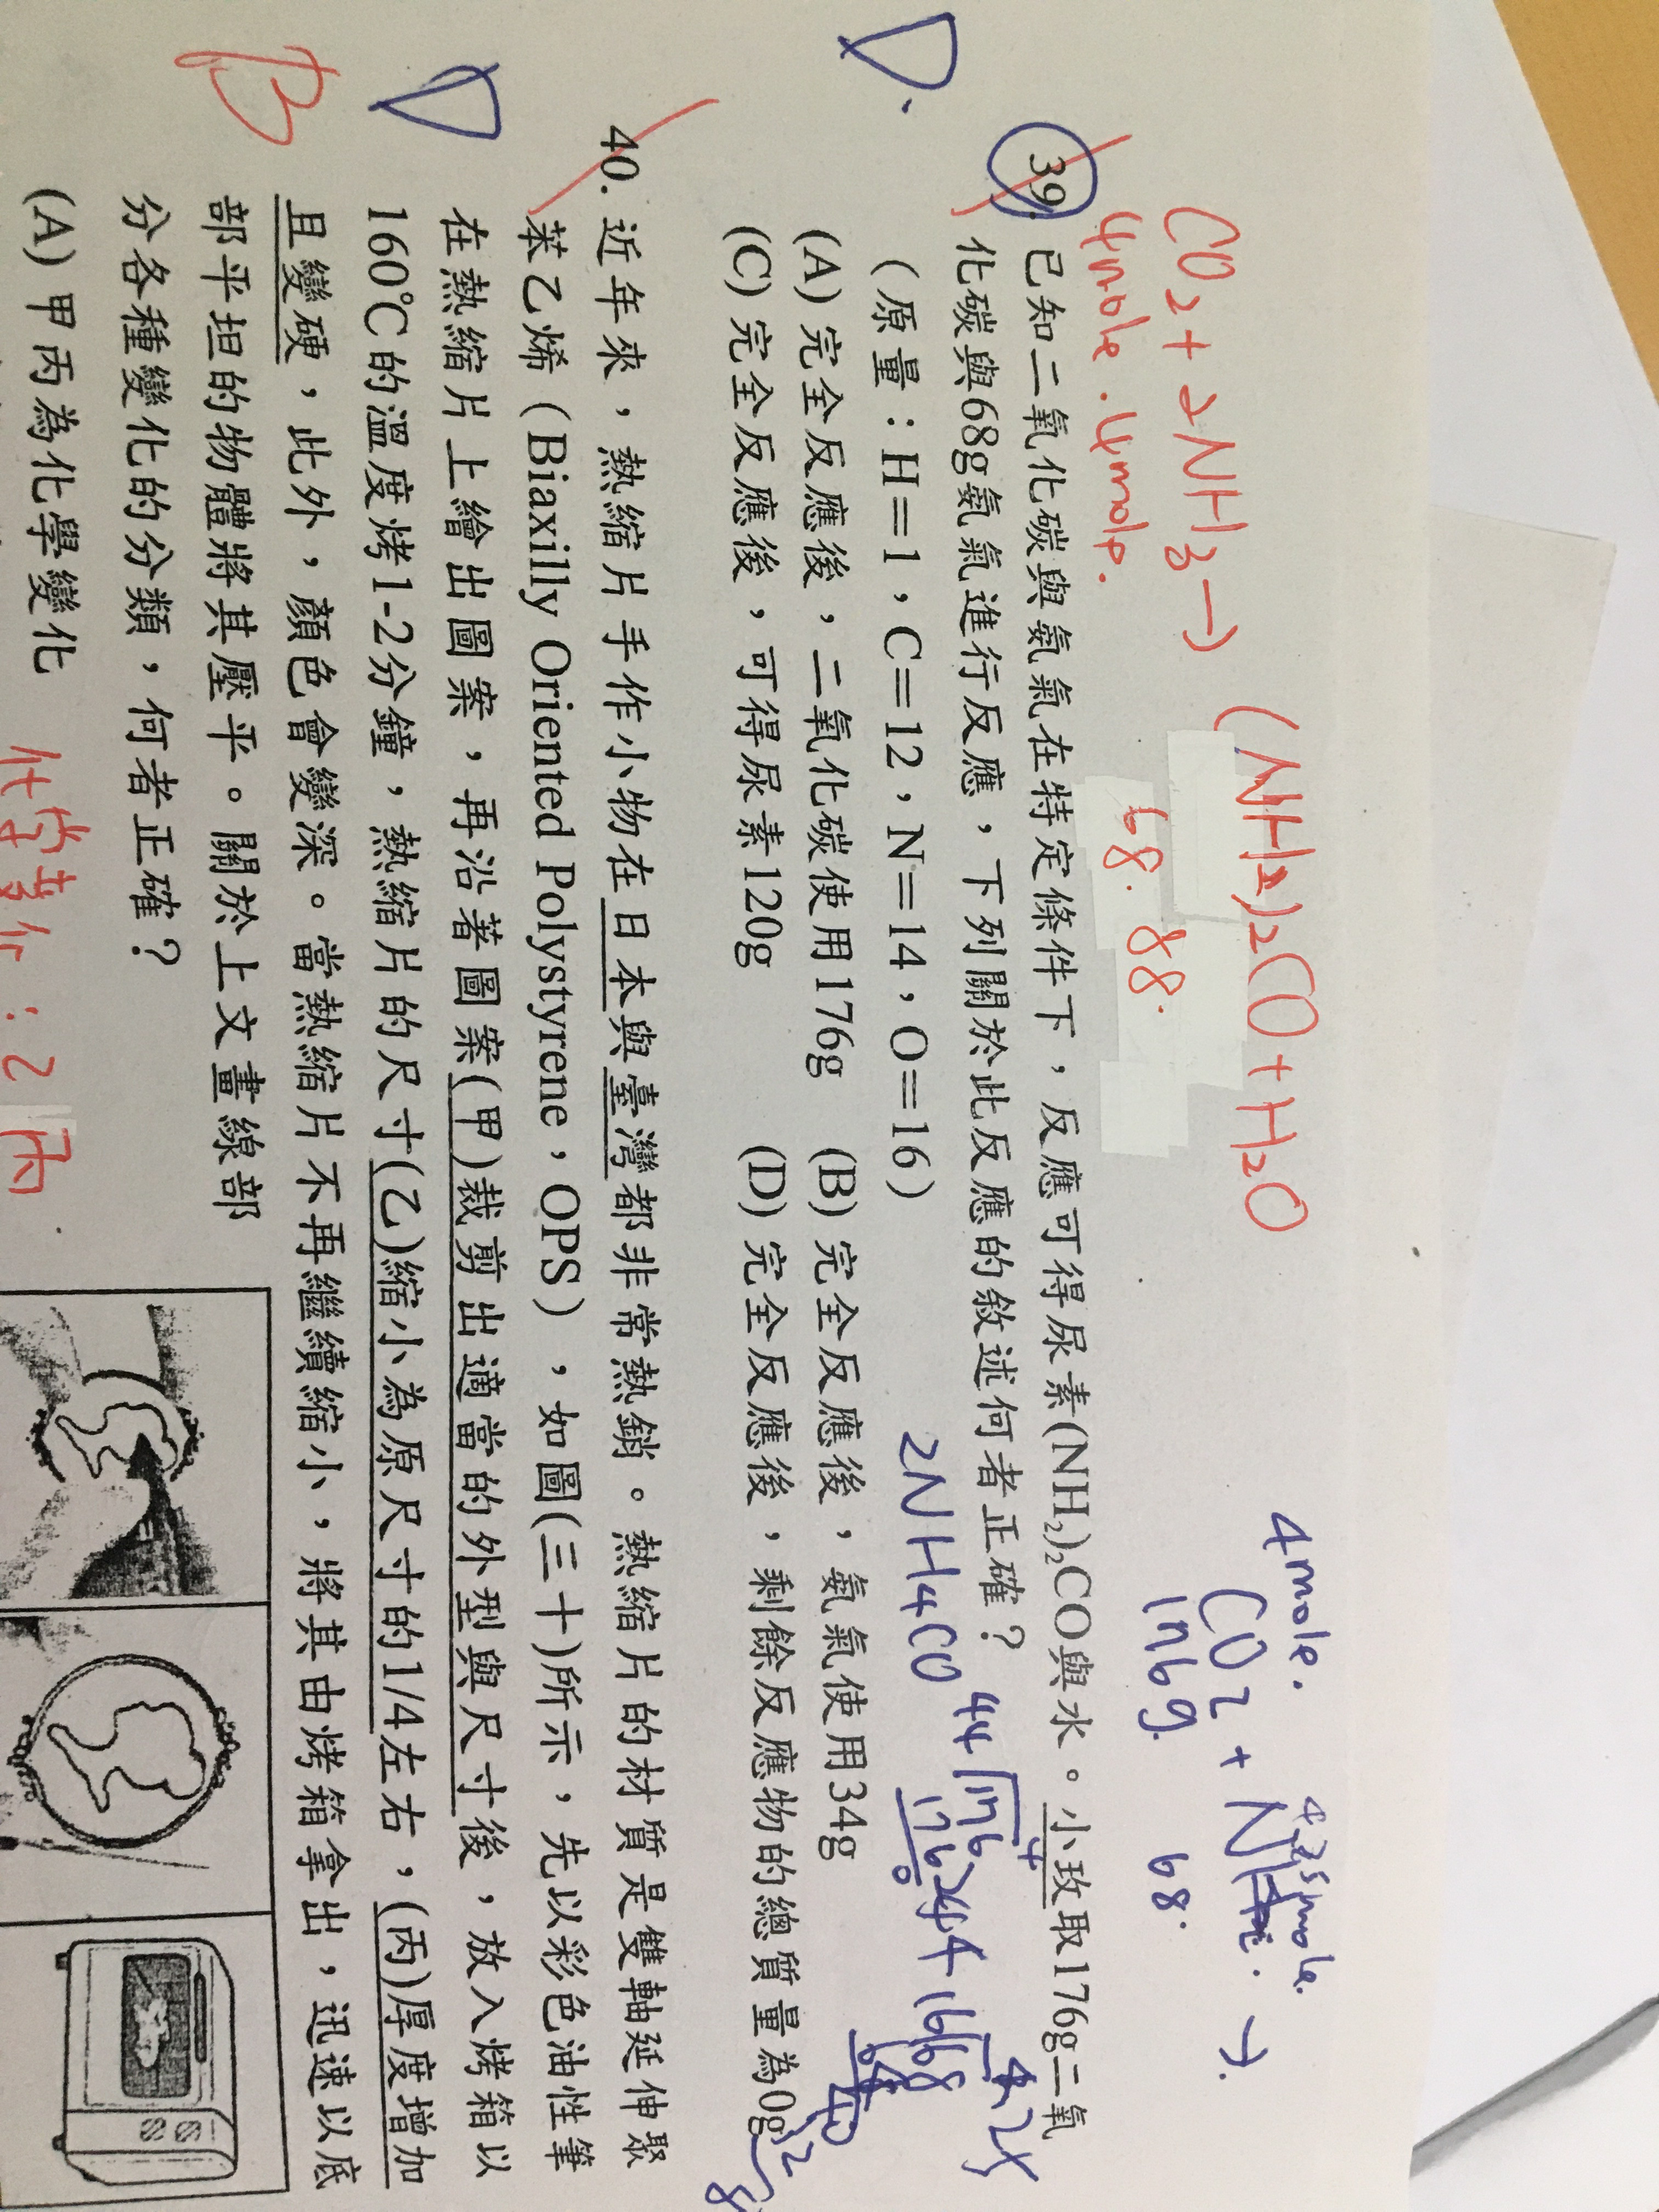 CO2+2NH3→ (NH2)2CO+H2O
4mole. 4mole.
68. 88.
4mole.
CO2+
176g. 68.
39. 已知二氧化碳與氨氣在特定條件下，反應可得尿素(NH₂)₂CO與水。小玫取176g二氧
化碳與68g氨氣進行反應，下列關於此反應的敘述何者正確？
（原量：H＝1，C＝12，N＝14，O＝16）
2NH4CO
D.
(A) 完全反應後，二氧化碳使用176g (B) 完全反應後，氨氣使用34g
(C) 完全反應後，可得尿素120g (D) 完全反應後，剩餘反應物的總質量為0g
40. 近年來，熱縮片手作小物在日本與臺灣都非常熱銷。熱縮片的材質是雙軸延伸聚
苯乙烯（Biaxilly Oriented Polystyrene，OPS），如圖(三十)所示，先以彩色油性筆
在熱縮片上繪出圖案，再沿著圖案(甲)裁剪出適當的外型與尺寸後，放入烤箱以
D
160℃的溫度烤1-2分鐘，熱縮片的尺寸(乙)縮小為原尺寸的1/4左右，(丙)厚度增加
且變硬，此外，顏色會變深。當熱縮片不再繼續縮小，將其由烤箱拿出，迅速以底
B
部平坦的物體將其壓平。關於上文畫線部
分各種變化的分類，何者正確？
(A) 甲丙為化學變化